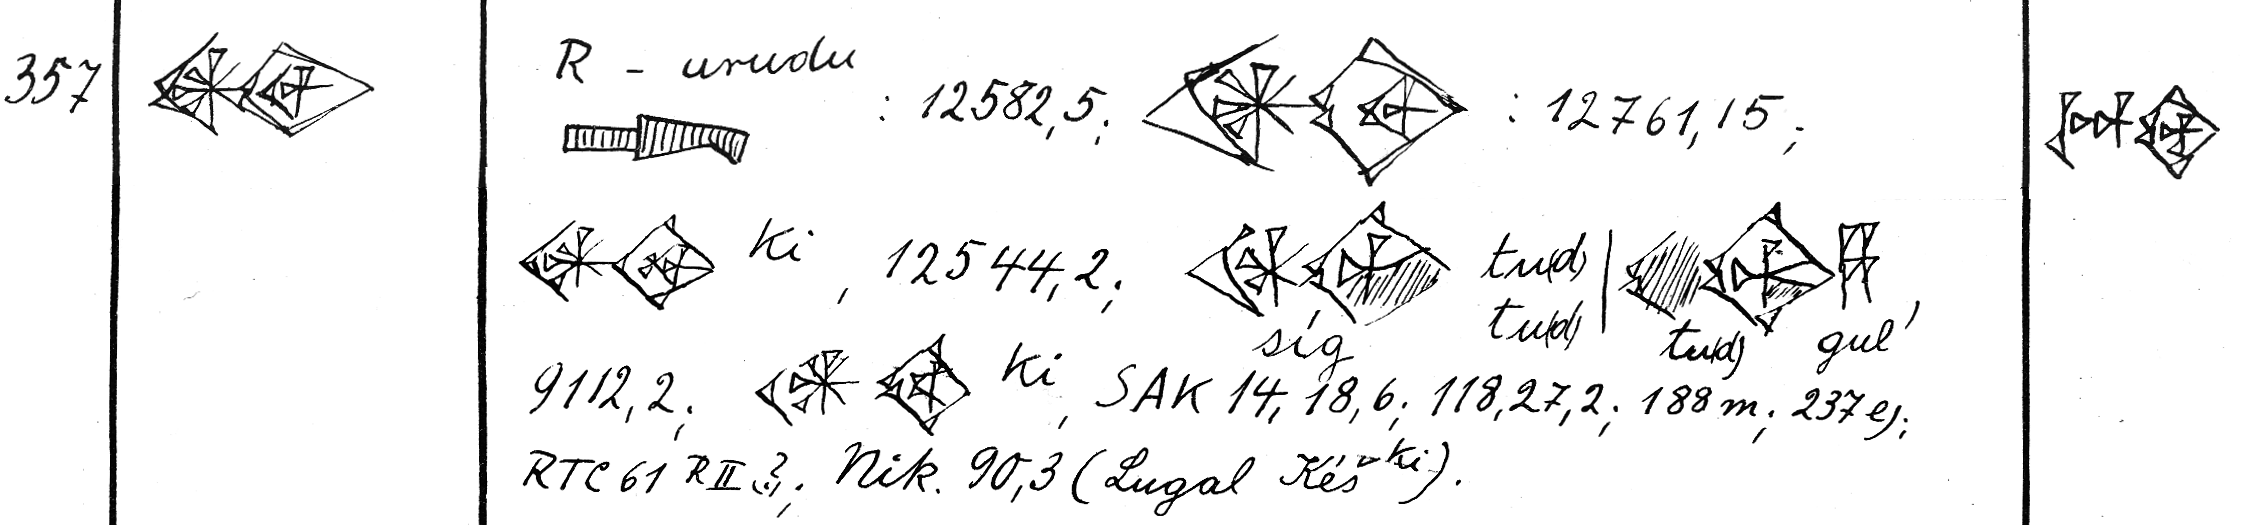 357 R - urudu : 12582,5; : 12761,15;
ki, 12544,2; síg tu(d) tu(d) | tu(d) gul,
9112,2; ki, SAK 14, 18,6; 118,27,2; 188 m; 237 e;
RTC 61 R II ?; Nik. 90,3 (Lugal Kèš ki).